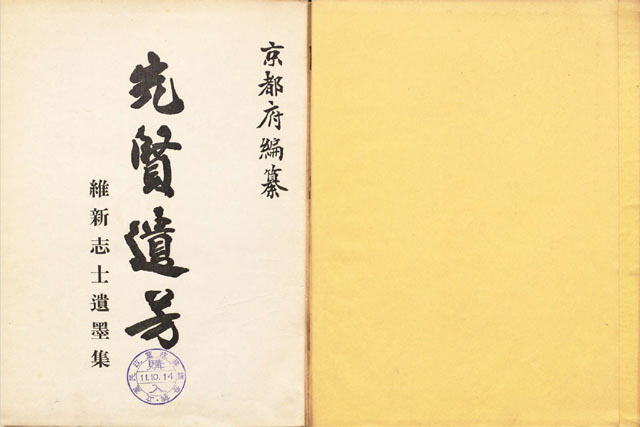 京都府編纂
先賢遺芳
維新志士遺墨集
購
11.10.14
入